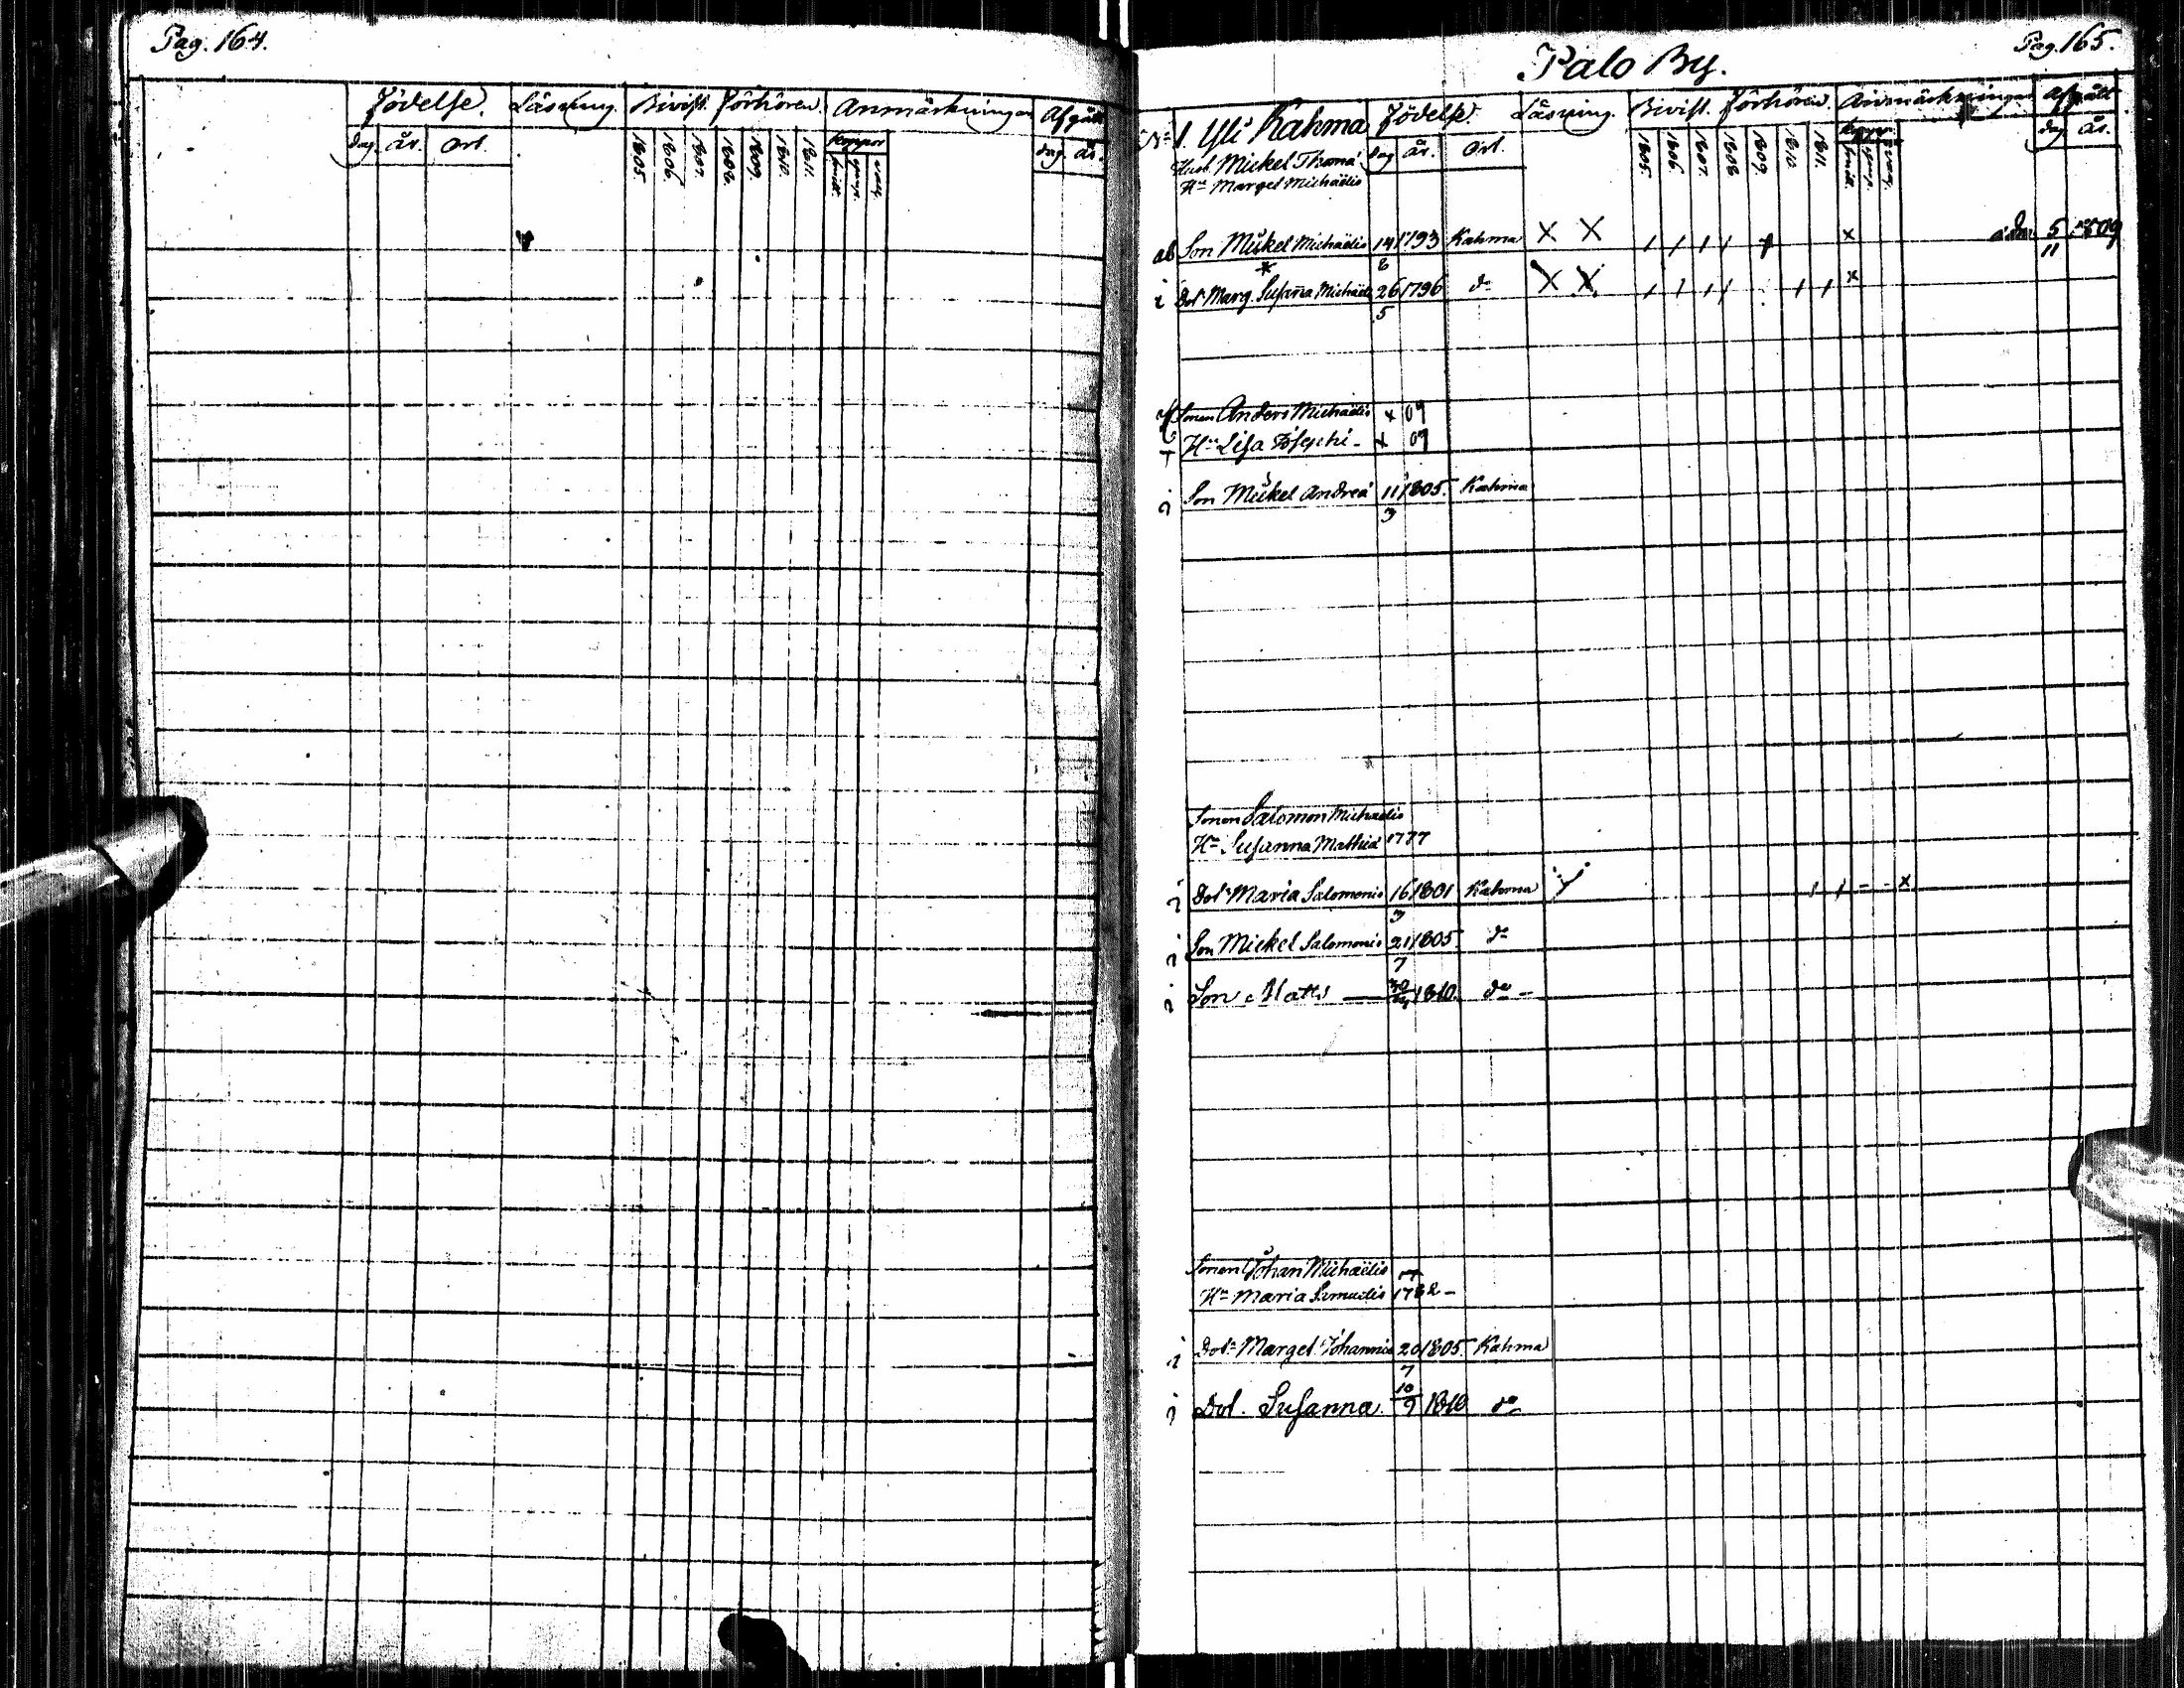 Pag. 164.
Födelse. Läsning. Bivist. Förhören. Anmärkningar Afgått
dag. år. Ort. 1805. 1806. 1807. 1808. 1809. 1810. 1811. Koppor dag år.
Pag. 165.
Palo By.
No 1. Yli Kahma Födelse. Läsning. Bivist. Förhören. Anmärkningar Afgått
Husb. Mickel Thomæ dag år. Ort. 1805. 1806. 1807. 1808 1809. 1810. 1811. Koppor dag år.
Hu Marget Michaëlis
ab Son Mickel Michaëlis 14/8 1793 Kahma X X x 5/11 1809
i Dotr Marg. Susanna Michaëlis 26/5 1796 do X X x
Sonen Anders Michaëlis x 09
Hu Lisa Josephi - x 09
i Son Mickel Andreæ 11/3 1805. Kahma
Sonen Salomon Michaelis
Hu Susanna Mathiæ 1777
i Dotr Maria Salomonis 16/3 1801 Kahma x
i Son Mickel Salomonis 21/7 1805. do
i Son Matts — 1810. do -
Sonen Johan Michaëlis
Hu Maria Samuelis 1782 -
i Dotr Marget Johannis 20/7 1805. Kahma
i Dot. Susanna 10/9 1810 do